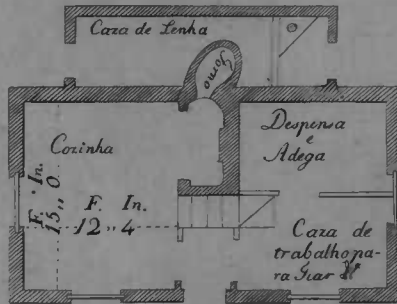 Caza de Lenha
Forno
Cozinha
Despensa
e
Adega
F. In.
15,, 0
F. In.
12,, 4
Caza de
trabalho pa-
ra Fiar &